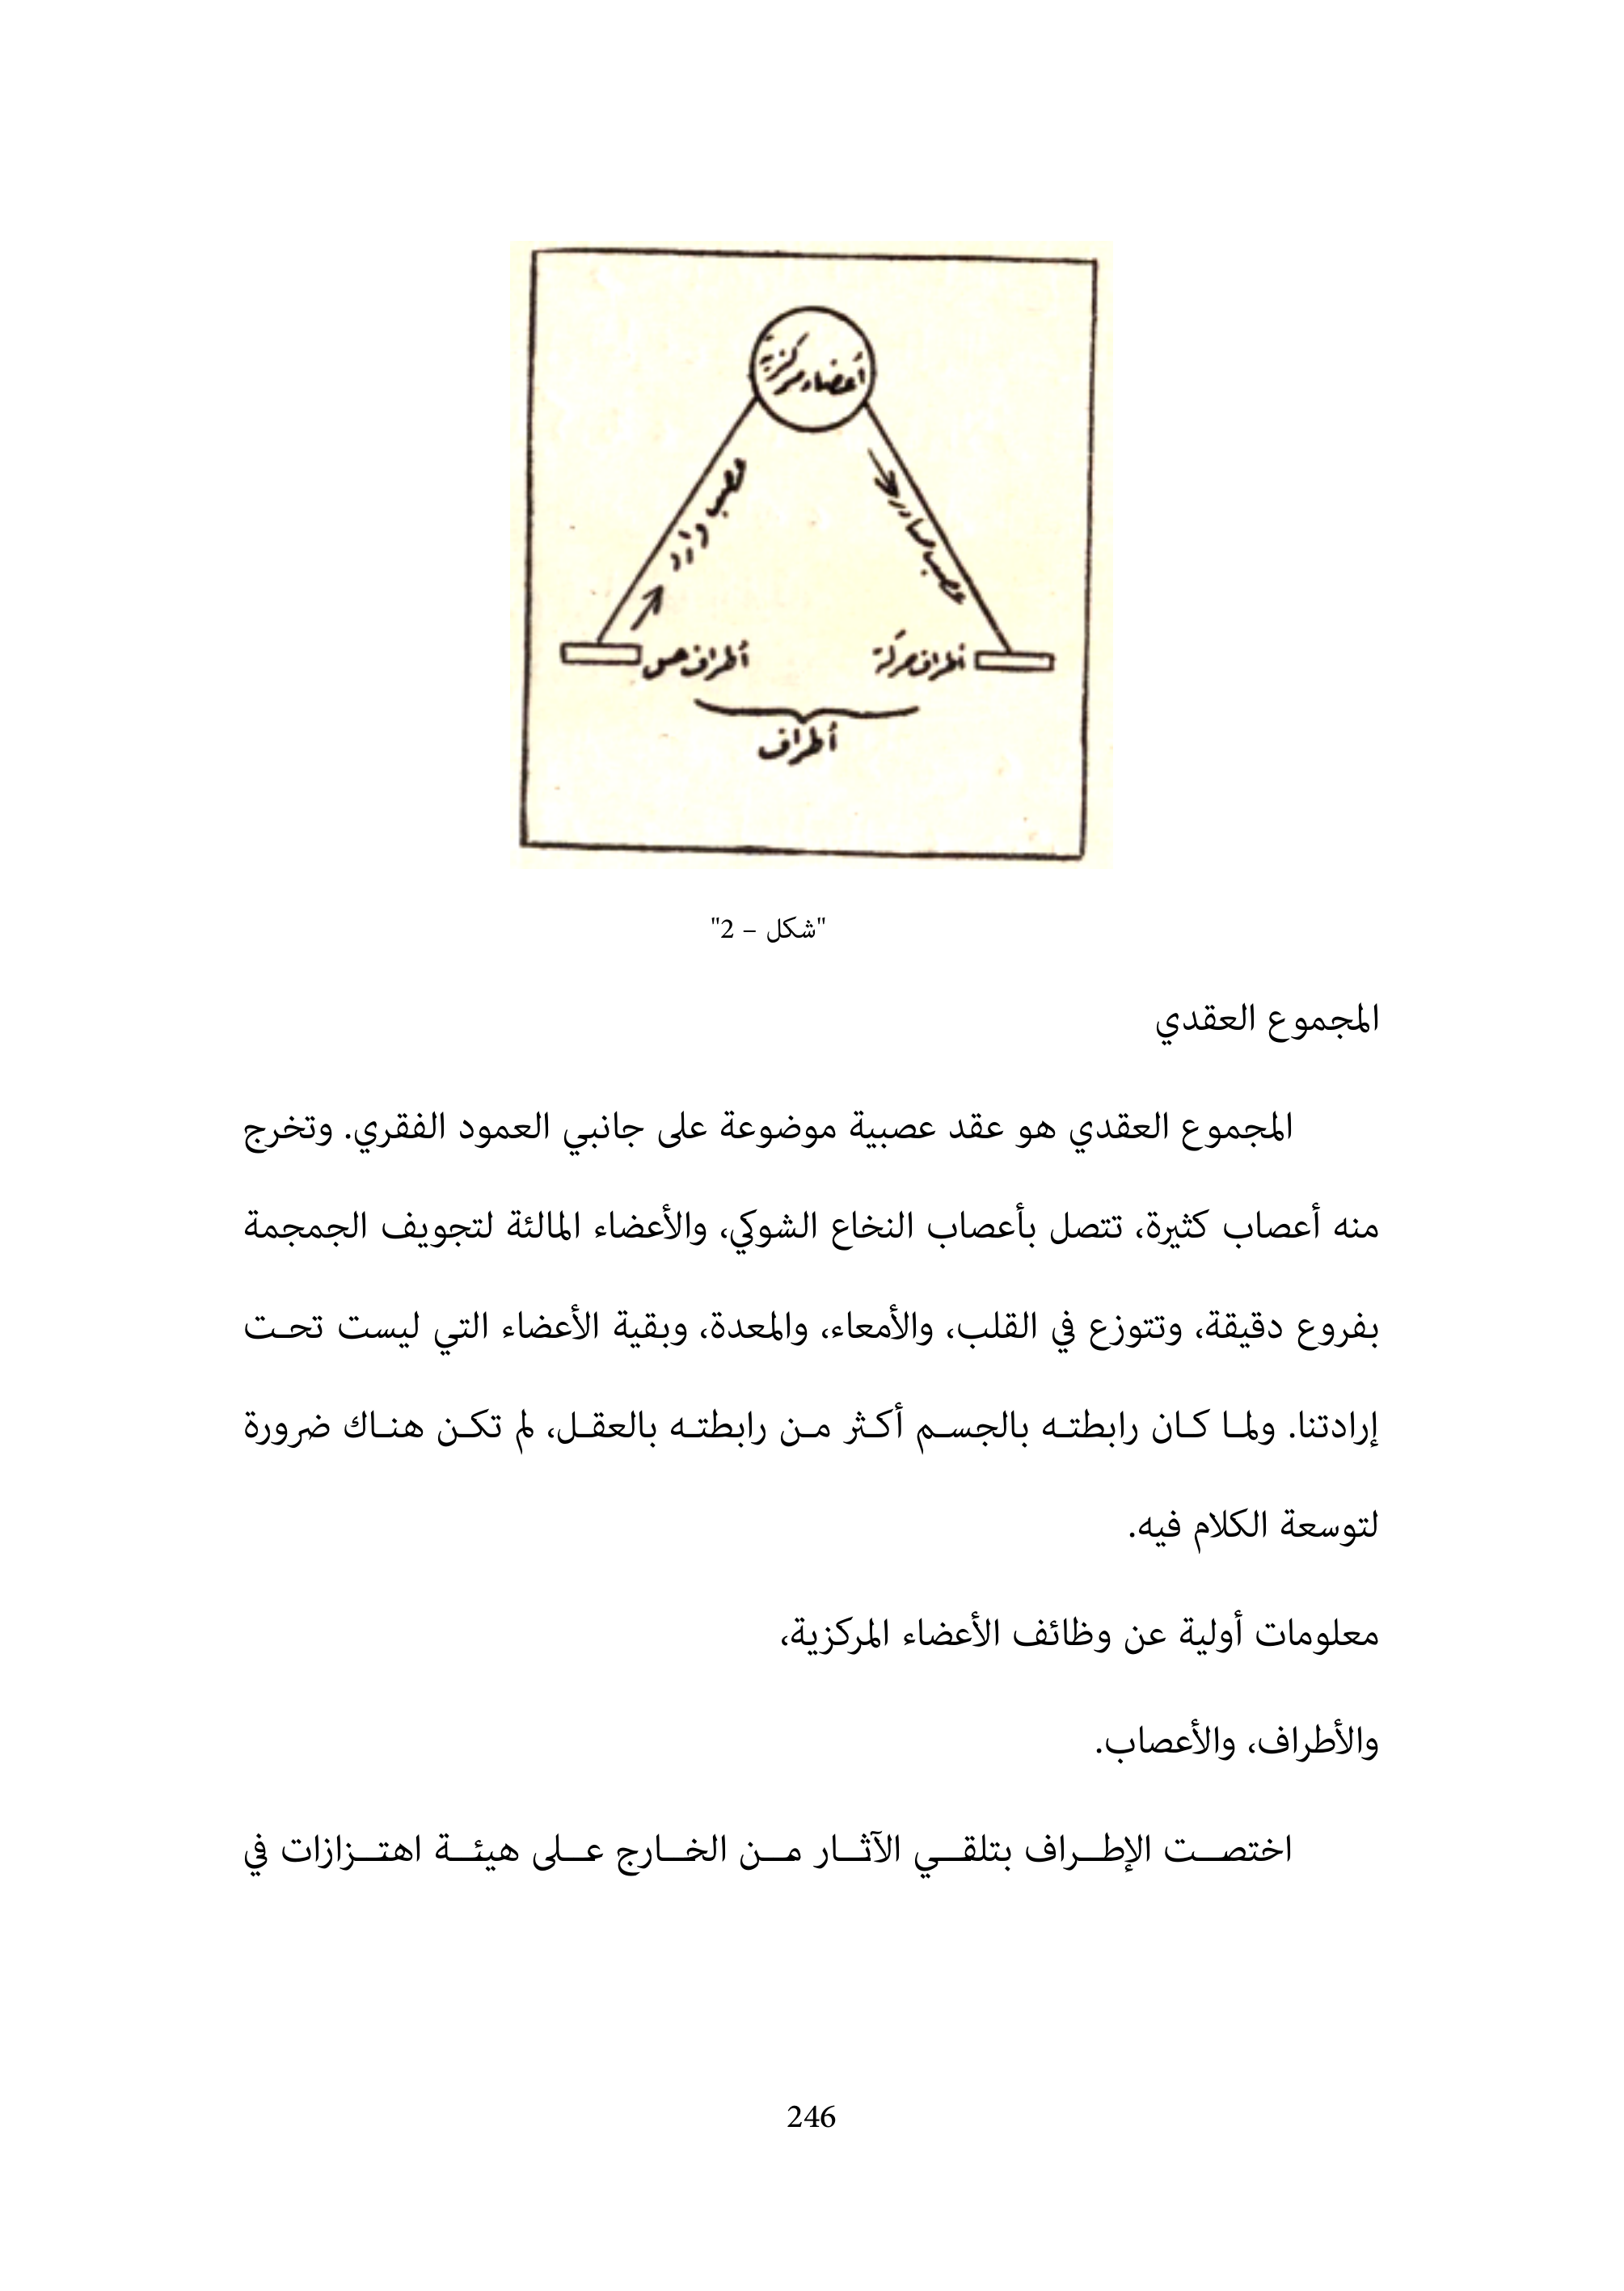 أعضاء مركزية
عصب وارد
عصب صادر
أطراف حس
أطراف حركة
أطراف
"شكل – 2"
المجموع العقدي
المجموع العقدي هو عقد عصبية موضوعة على جانبي العمود الفقري. وتخرج
منه أعصاب كثيرة، تتصل بأعصاب النخاع الشوكي، والأعضاء المالئة لتجويف الجمجمة
بفروع دقيقة، وتتوزع في القلب، والأمعاء، والمعدة، وبقية الأعضاء التي ليست تحت
إرادتنا. ولما كان رابطته بالجسم أكثر من رابطته بالعقل، لم تكن هناك ضرورة
لتوسعة الكلام فيه.
معلومات أولية عن وظائف الأعضاء المركزية،
والأطراف، والأعصاب.
اختصت الإطراف بتلقي الآثار من الخارج على هيئة اهتزازات في
246